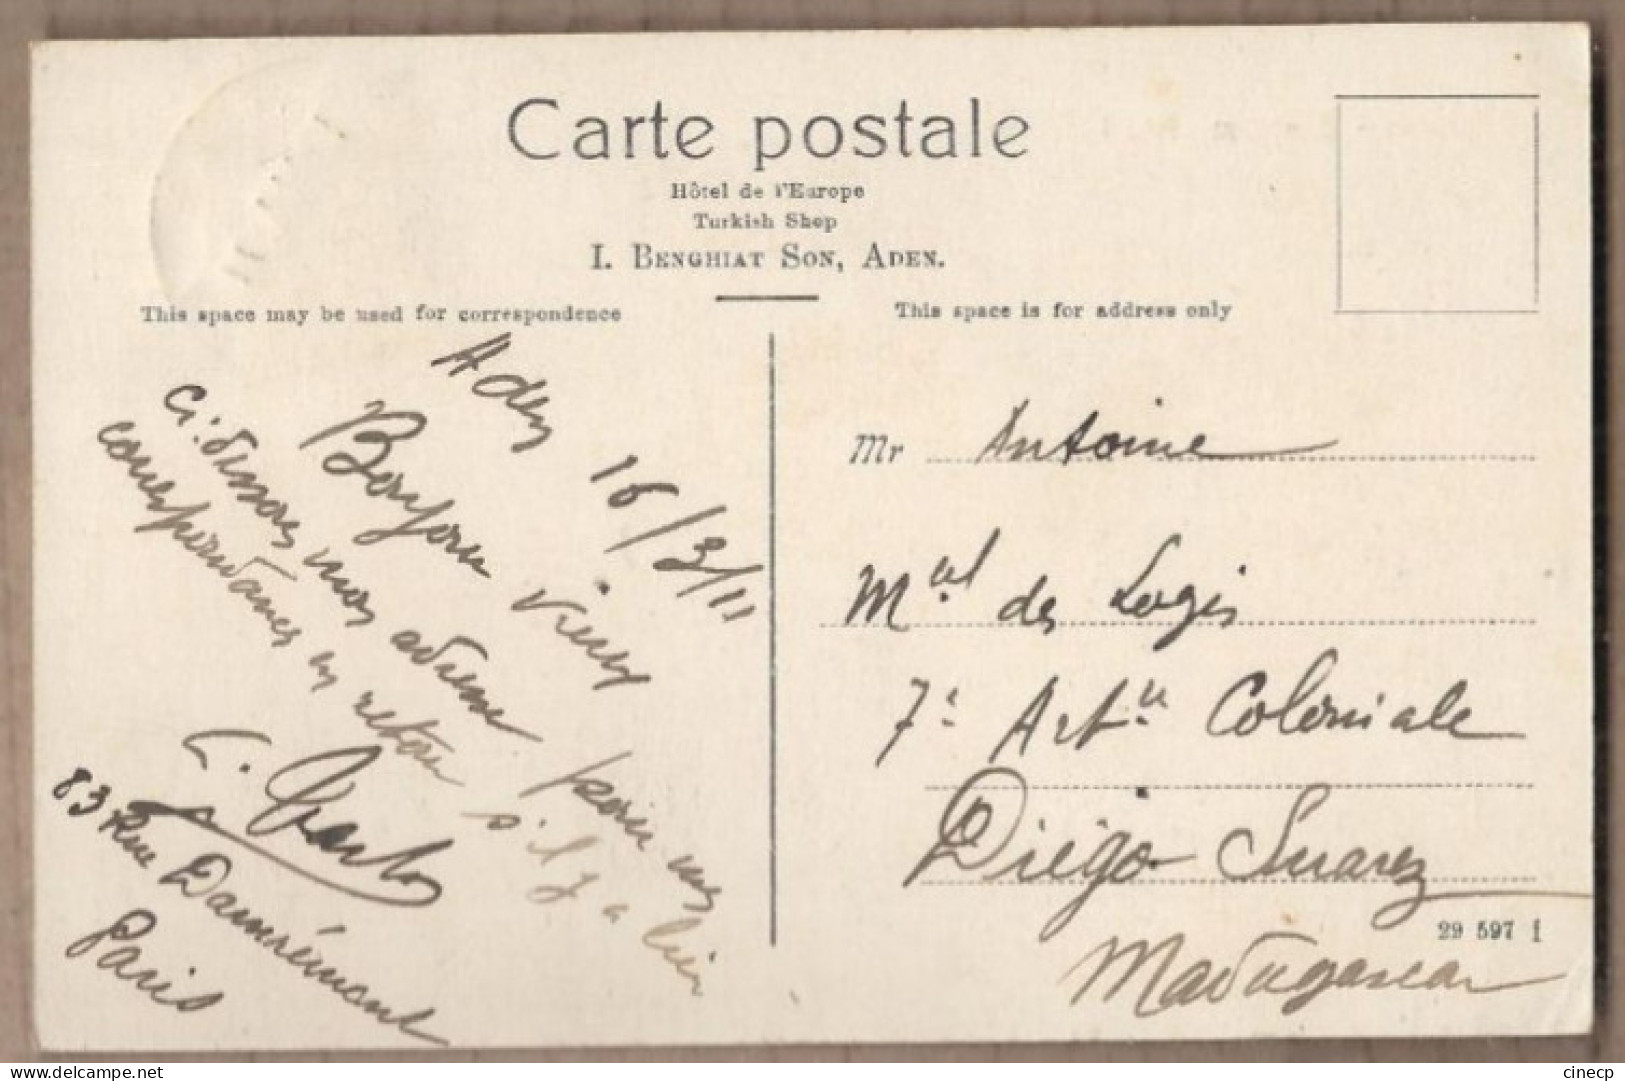 Carte postale
Hôtel de l'Europe
Turkish Shop
I. BENGHIAT SON, ADEN.
This space may be used for correspondence
This space is for address only
Aden 16/3/11
Bonjour vieux
Ci-dessous mon adresse pour nos
correspondances en retour s'il y a lieu
83 Rue Damrémont
Paris
Mr Antoine
Mal des Logis
7e Artie Coloniale
Diégo Suarez
29 597 I
Madagascar
delcampe.net
cinecp